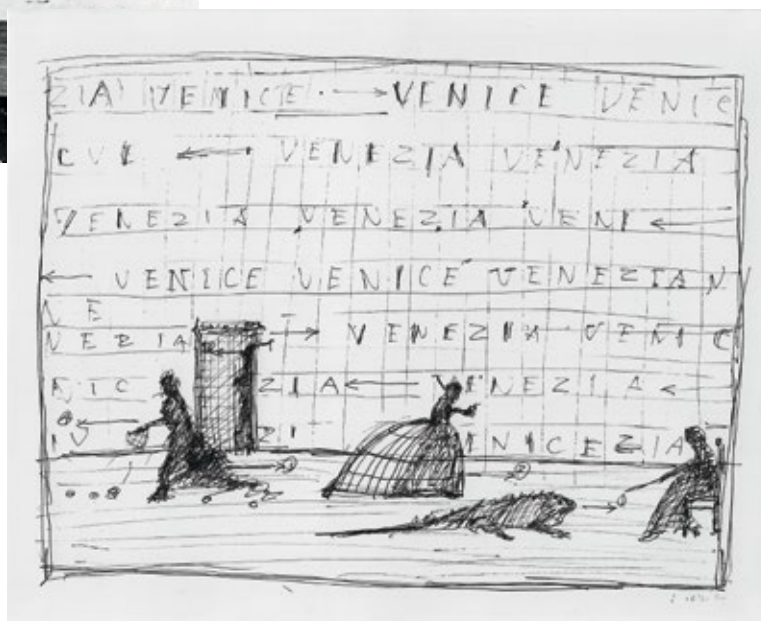 ZIA VENICE → VENICE VENIC
CVE ← VENEZIA VENEZIA
VENEZIA VENEZIA VENI ←
← VENICE VENICE VENEZIAN
NE
NEBIA → VENEZIA VENIC
NIC ZIA ← VENEZIA ←
ZI NICEZIA